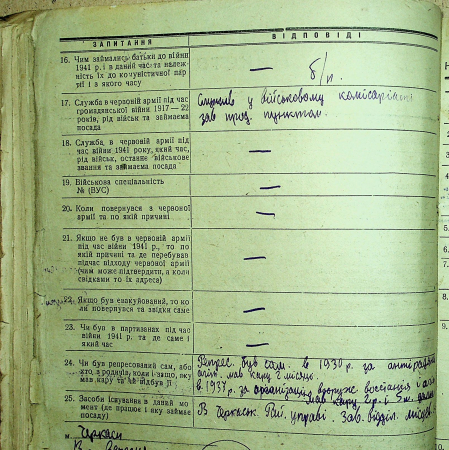 ЗАПИТАННЯ
ВІДПОВІДІ
16. Чим займались батьки до війни
1941 р. і в даний час та належ-
ність їх до комуністичної пар-
тії і з якого часу
— б/п.
17. Служба в червоній армії під час
громадянської війни 1917—22
років, рід військ та займаєма
посада
Служив у військовому комісаріаті
зав прод. пунктом.
18. Служба, в червоній армії під
час війни 1941 року, який час,
рід військ, останнє військове
звання та займаєма посада
—
19. Військова спеціальність
№ (ВУС)
—
20. Коли повернувся з червоної
армії та по якій причині
—
21. Якщо не був в червоній армії
під час війни 1941 р., то по
якій причині та де перебував
підчас відходу червоної армії
(чим може підтвердити, а коли
свідками то їх адреса)
—
22. Якщо був евакуйований, то ко-
ли повернувся та звідки саме
—
23. Чи був в партизанах під час
війни 1941 р. та де саме і
який час
—
24. Чи був репресований сам, або
хто з родичів, коли і защо, яку
мав кару та чи відбув її
Репрес. був сам. в 1930 р. за
мав кару 2 місяц.
в 1937 р. за організацію
мав кару 2 р. і 5 м.
25. Засоби існування в даний мо-
мент (де працює і яку займає
посаду)
В Черкаськ. Рай. управі. Зав. відділ.
м. Черкаси